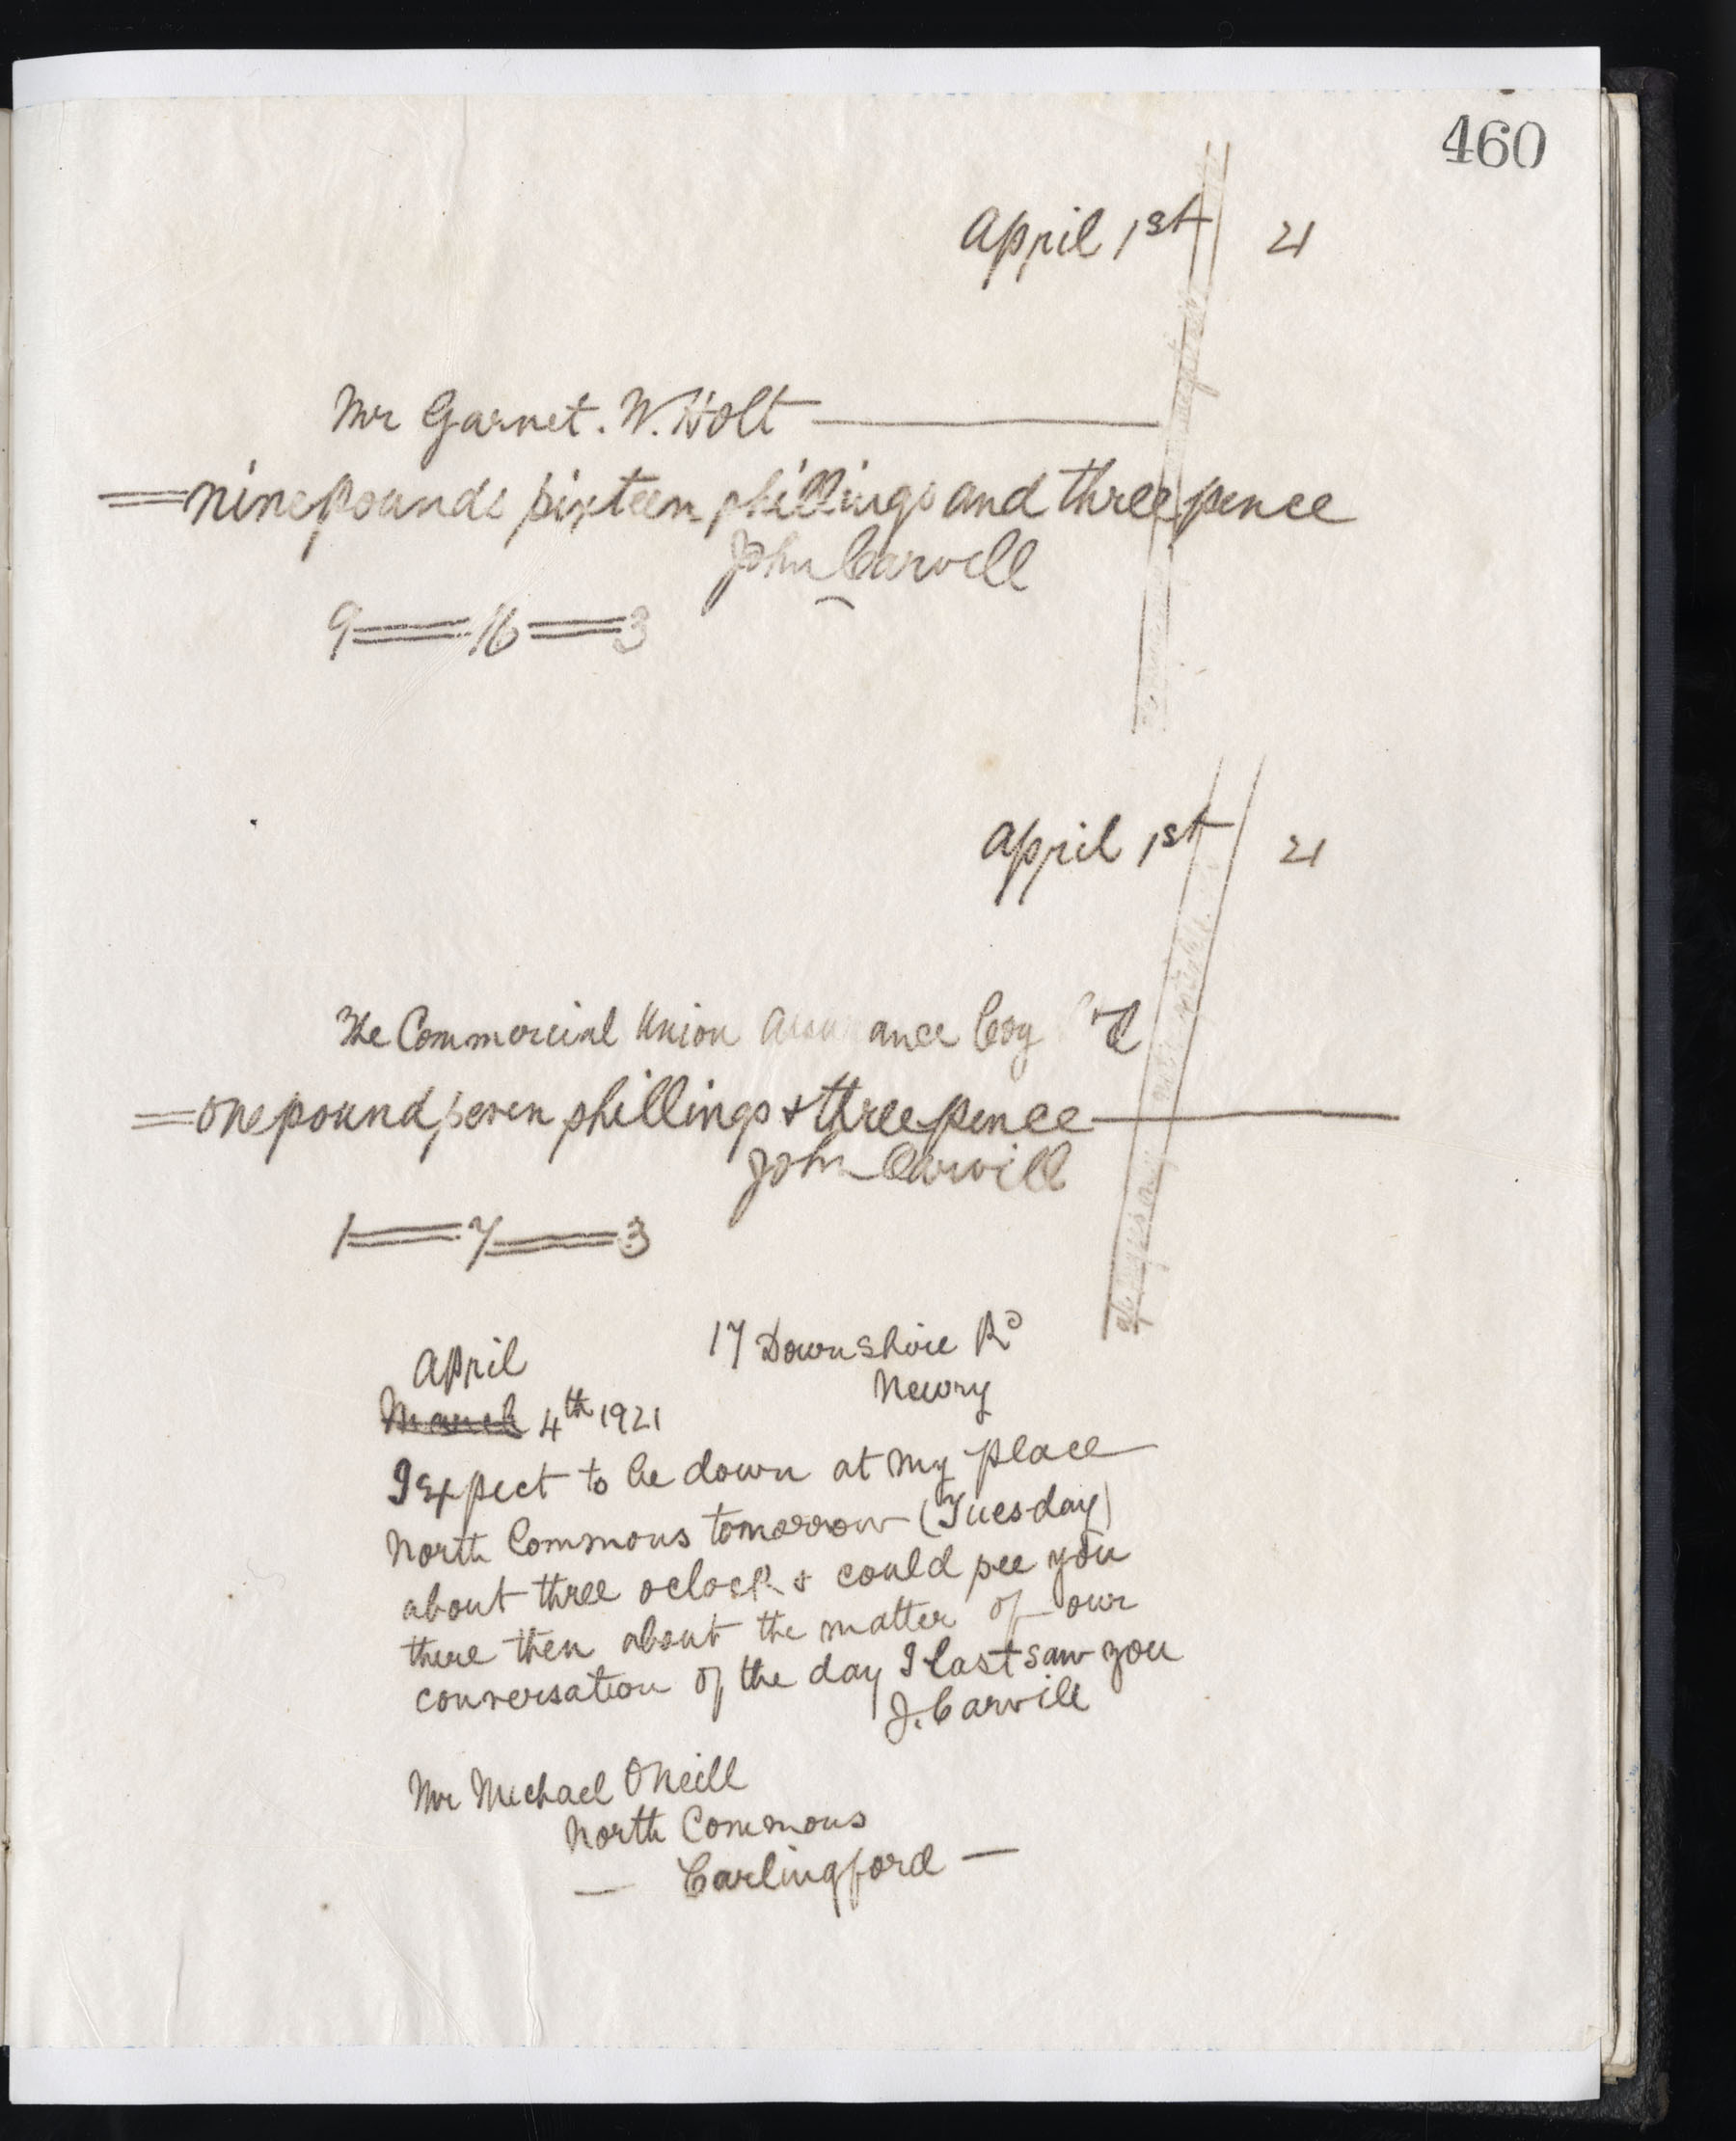 460
April 1st 21
Mr Garnet. W. Holt
= nine pounds sixteen shillings and three pence
John Carvill
9 == 16 == 3
April 1st 21
The Commercial Union Assurance Coy Ltd
= one pound seven shillings & three pence
John Carvill
1 == 7 == 3
17 Downshire Rd
Newry
April
March 4th 1921
I Expect to be down at my place
North Commons tomorrow (Tuesday)
about three oclock & could see you
there then about the matter of our
conversation of the day I last saw you
J. Carvill
Mr Michael ONeill
North Commons
— Carlingford —